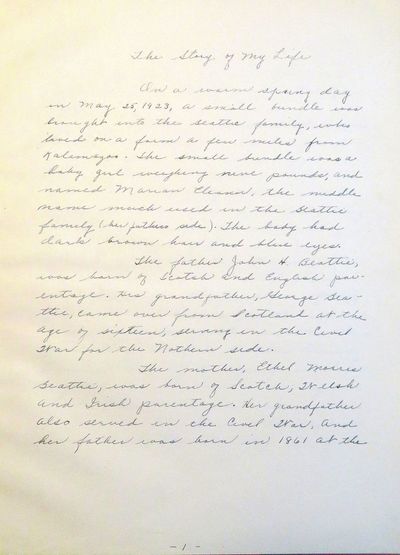 The Story of My Life
On a warm spring day
in May 25, 1923, a small bundle was
brought into the Beattie family, who
lived on a farm a few miles from
Kalamazoo. The small bundle was a
baby girl weighing nine pounds, and
named Marian Eleanor, the middle
name much used in the Beattie
family (her fathers side). The baby had
dark brown hair and blue eyes.
The father John H. Beattie,
was born of Scotch and English par-
entage. His grandfather, George Bea-
ttie, came over from Scotland at the
age of sixteen, serving in the Civil
War for the Nothern side.
The mother, Ethel Morris
Beattie, was born of Scotch, Welsh
and Irish parentage. Her grandfather
also served in the Civil War, and
her father was born in 1861 at the
- 1 -